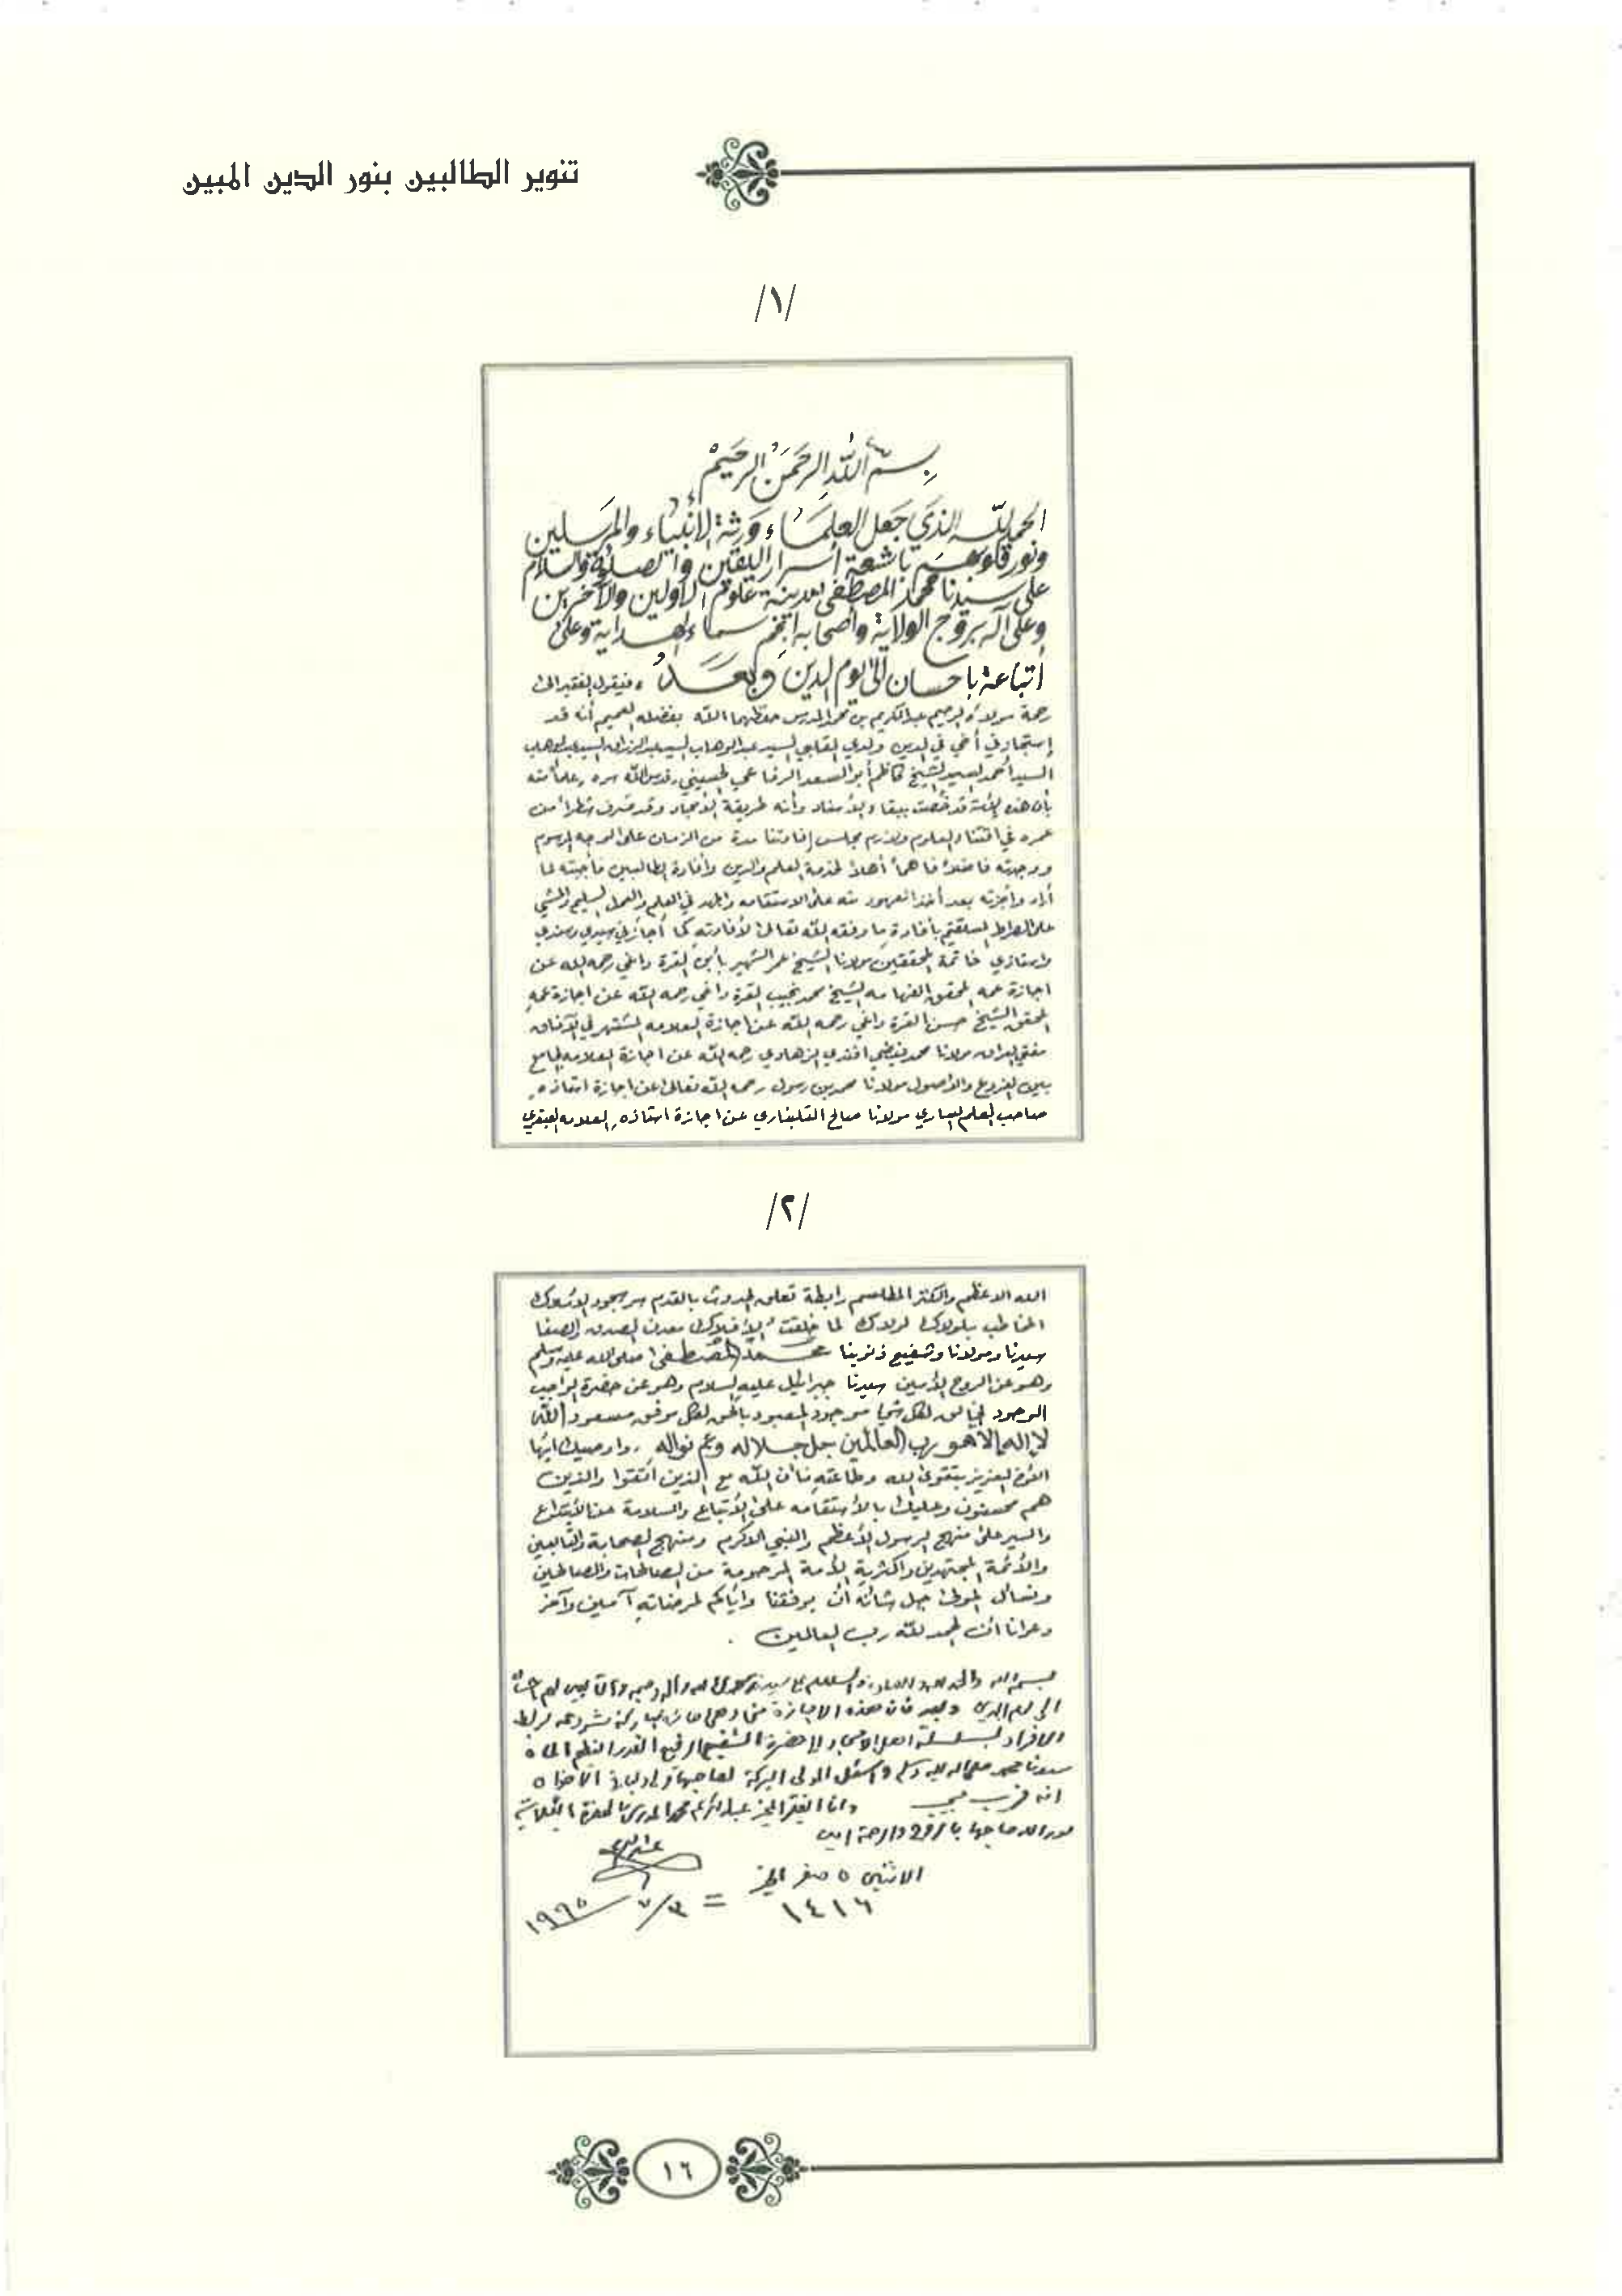 تنوير الطالبين بنور الدين المبين
/١/
بسم الله الرحمن الرحيم
الحمد لله الذي جعل العلماء ورثة الأنبياء والمرسلين
ونور قلوبهم بأشعة أسرار اليقين والصلاة والسلام
على سيدنا محمد المصطفى مدينة علوم الأولين والآخرين
وعلى آله بروج الولاية وأصحابه أنجم سماء الهداية وعلى
أتباعه بإحسان إلى يوم الدين وبعد فيقول الفقير إلى
رحمة مولاه الرحيم عبدالكريم بن محمد المدرس حفظهما الله بفضله العميم أنه قد
إستجازني أخي في الدين وولدي القلبي السيد عبدالوهاب السيد عبدالرزاق السيد عبدالوهاب
السيد أحمد السيد الشيخ كاظم أبو السعد الرفاعي الحسيني قدس الله سره وعلماً منه
بأن هذه الأمة قد خصت ببقاء الأسناد وأنه طريقة الأمجاد وقد صرف شطراً من
عمره في اقتناء العلوم ولازم مجلس إفادتنا مدة من الزمان على الوجه المرسوم
ووجدته فاضلاً فاهماً أهلاً لخدمة العلم والدين وأفادة الطالبين فأجبته لما
أراد وأجزته بعد أخذ العهود منه على الاستقامة والجد في العلم والعمل السليم والمشي
على الصراط المستقيم بأفادة ما وفقه الله تعالى لأفادته كما أجازني سيدي وسندي
واستاذي خاتمة المحققين مولانا الشيخ عمر الشهير بأبن القرة داغي رحمه الله عن
اجازة عمه المحقق الفهامه الشيخ محمد نجيب القرة داغي رحمه الله عن اجازة عمه
المحقق الشيخ حسن القرة داغي رحمه الله عن اجازة العلامه المشتهر في الآفاق
مفتي العراق مولانا محمد فيضي افندي الزهاوي رحمه الله عن اجازة العلامه الجامع
بين الفروع والأصول مولانا محمد بن رسول رحمه الله تعالى عن اجازة استاذه
صاحب العلم الساري مولانا صالح التلبغاري عن اجازة استاذه العلامه العبقري
/٢/
الله الاعظم والكنز المطلسم رابطة تعلق الحدوث بالقدم سر سجود الأملاك
المخاطب بلولاك لولاك لما خلقت الأفلاك معدن الصدق والصفا
سيدنا ومولانا وشفيع ذنوبنا محمد المصطفى صلى الله عليه وسلم
وهو عن الروح الأمين سيدنا جبرائيل عليه السلام وهو عن حضرة الواجب
الوجود الخالق لكل شيء موجود المعبود بالحق لكل موفق مسعود الله
لا إله إلا هو رب العالمين جل جلاله وعم نواله . واوصيك ايها
الأخ العزيز بتقوى الله وطاعته فأن الله مع الذين اتقوا والذين
هم محسنون وعليك بالأستقامه على الأتباع والسلامة من الأبتداع
والسير على منهج الرسول الأعظم والنبي الاكرم ومنهج الصحابة والتابعين
والأئمة المجتهدين واكثرية الأمة المرحومة من الصالحات والصالحين
ونسأل المولى جل شأنه أن يوفقنا وأياكم لمرضاته آمين وآخر
دعوانا أن الحمد لله رب العالمين .
بسم الله والحمد لله والصلاة والسلام على سيدنا محمد وآله وصحبه والتابعين لهم
الى يوم الدين وبعد فان هذه الاجازة مشروعه لربط
الافراد بسلسلة اهل الامجاد الى حضرة الشفيع الرفيع القدر
سيدنا محمد صلى الله عليه وسلم واسئل المولى البركة لصاحبها
انه قريب مجيب وانا الفقير عبدالكريم محمد المدرس
نور الله صاحبها
الاثنين ٥ صفر الخير
١٤١٦ = ٣/٧ ١٩٩٥
١٦